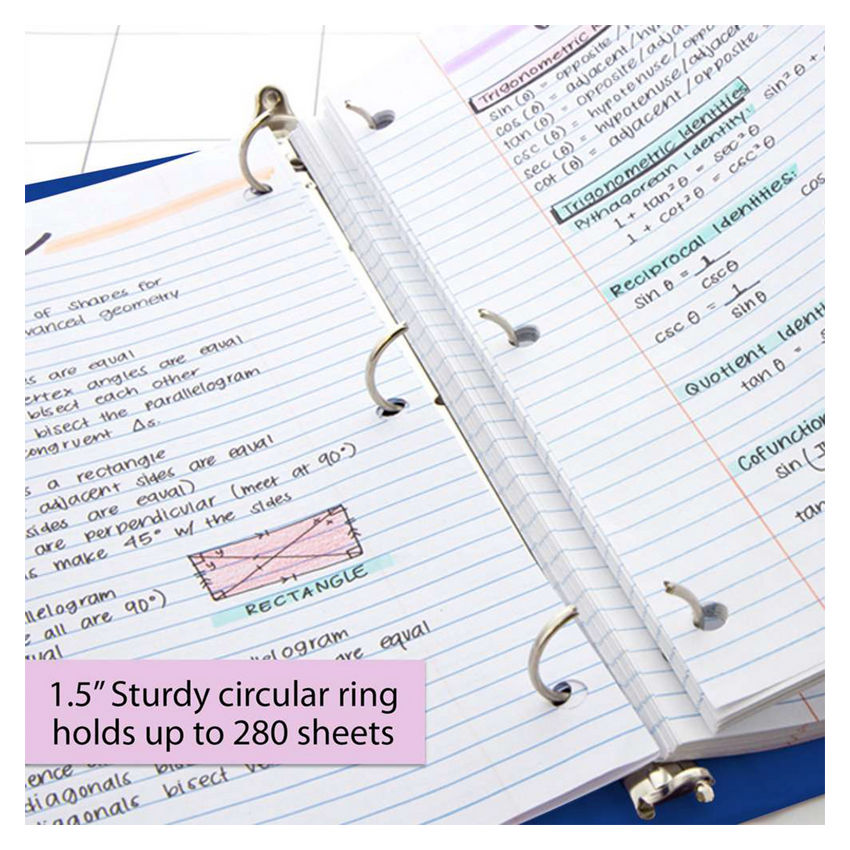 of shapes for
geometry
are equal
angles are equal
bisect each other
bisect the parallelogram
Δs.
a rectangle
adjacent sides are equal
are equal)
are perpendicular (meet at 90°)
make 45° w/ the sides
RECTANGLE
all are 90°)
are equal
1.5” Sturdy circular ring
holds up to 280 sheets
diagonals bisect
diagonals
Trigonometric
sin (θ) = opposite/
cos (θ) = adjacent/
tan (θ) = opposite/
csc (θ) = hypotenuse/
sec (θ) = hypotenuse/adjacent
cot (θ) = adjacent/opposite
Trigonometric Identities
Pythagorean Identity:
sin²θ +
1 + tan²θ = sec²θ
1 + cot²θ = csc²θ
Reciprocal Identities:
sin θ = 1
cscθ
cos
csc θ = 1
sinθ
Quotient
tan θ =
sin(
tan